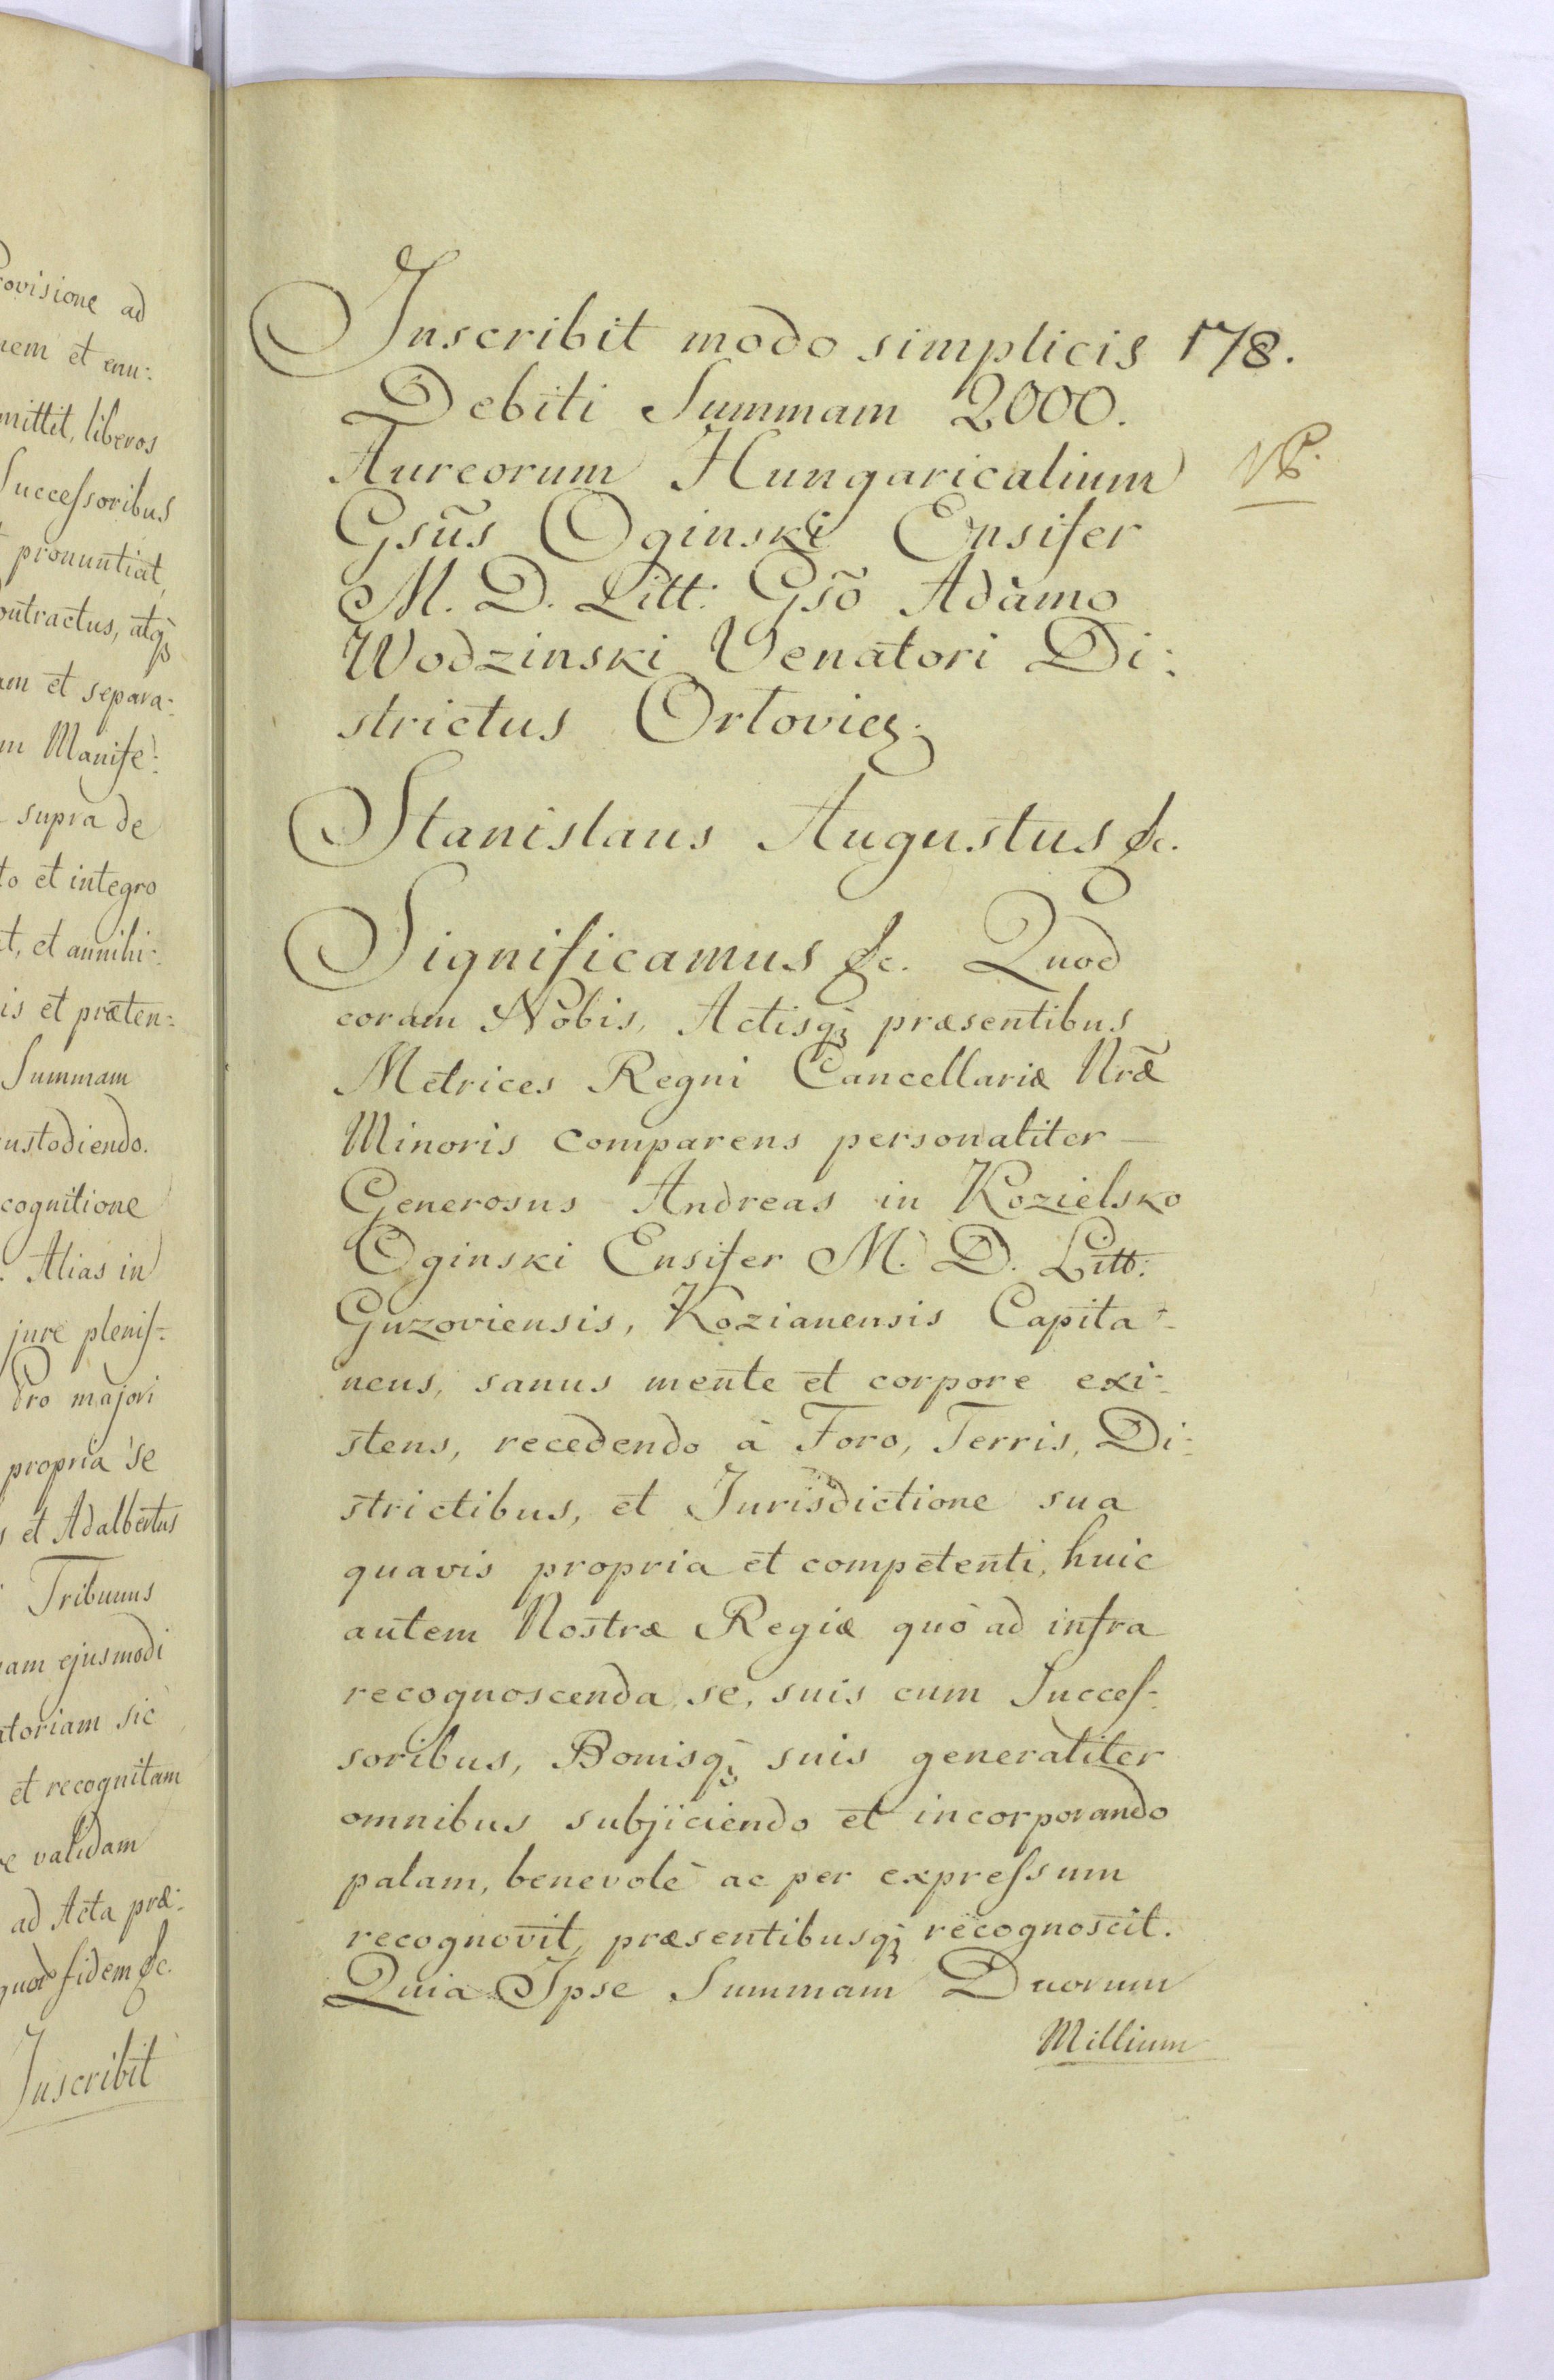 ovisione ad
nem et enu:
mittit, liberos
Successoribus
pronuntiat,
ontractus, atq̃
am et separa:
m Manife:
supra de
to et integro
t, et annihi:
is et præten:
Summam
ustodiendo.
cognitione
. Alias in
jure pleniss:
dro majori
propria se
s et Adalbertus
Tribunus
nam ejusmodi
atoriam sic
et recognitam
e validam
ad Acta præ:
quor fidem &c.
Inscribit
Inscribit modo simplicis 178.
Debiti Summam 2000.
Aureorum Hungaricalium
Gsũs Oginski Ensifer
M. D. Litt: Gsõ Adamo
Wodzinski Venatori Di:
strictus Orłovien:
Stanislaus Augustus &c.
Significamus &c. Quod
coram Nobis, Actisq̃ præsentibus
Metrices Regni Cancellariæ Nræ̃
Minoris comparens personaliter
Generosus Andreas in Kozielsko
Oginski Ensifer M. D. Litt:
Guzoviensis, Kozianensis Capita:
neus, sanus mente et corpore exi:
stens, recedendo à Foro, Terris, Di:
strictibus, et Jurisdictione sua
quavis propria et competenti, huic
autem Nostræ Regiæ quò ad infra
recognoscenda se, suis cum Succes:
soribus, Bonisq̃ suis generaliter
omnibus subjiciendo et incorporando
palam, benevolè ac per expressum
recognovit, præsentibusq̃ recognoscit.
Quia Ipse Summam Duorum
Millium